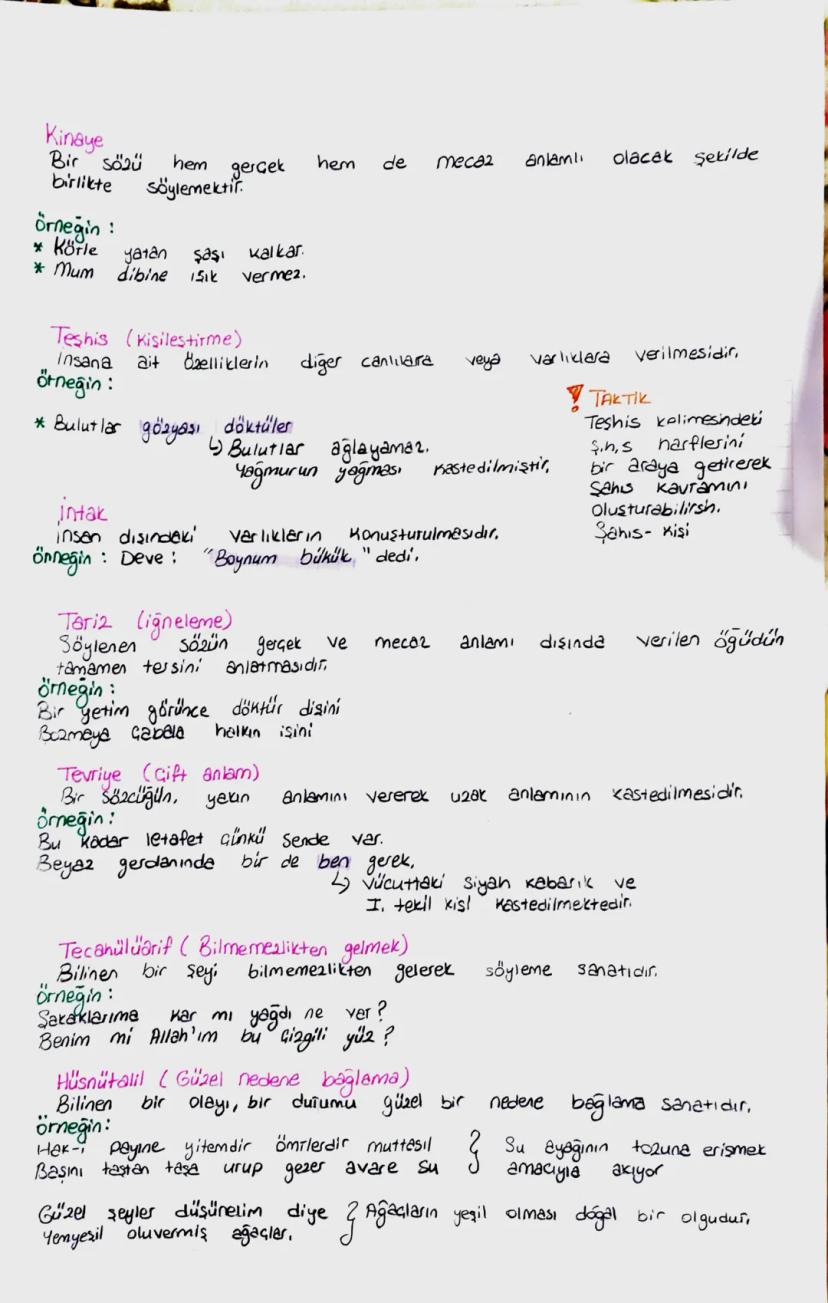 Kinaye
Bir sözü hem gerçek hem de mecaz anlamlı olacak şekilde
birlikte söylemektir.
örneğin :
* Körle yatan şaşı kalkar.
* Mum dibine ışık vermez.
Teşhis (kişileştirme)
İnsana ait özelliklerin diğer canlılara veya varlıklara verilmesidir.
örneğin :
* Bulutlar gözyaşı döktüler
↳ Bulutlar ağlayamaz.
Yağmurun yağması kastedilmiştir.
! TAKTİK
Teşhis kelimesindeki
ş,h,s harflerini
bir araya getirerek
Şahıs kavramını
oluşturabilirsin.
Şahıs - Kişi
İntak
İnsan dışındaki varlıkların konuşturulmasıdır.
önneğin : Deve : "Boynum bükük." dedi.
Tariz (iğneleme)
Söylenen sözün gerçek ve mecaz anlamı dışında verilen öğüdün
tamamen tersini anlatmasıdır.
örneğin :
Bir yetim görünce döktür dişini
Bozmaya çabala halkın işini
Tevriye (çift anlam)
Bir sözcüğün, yakın anlamını vererek uzak anlamının kastedilmesidir.
örneğin :
Bu kadar letafet çünkü sende var.
Beyaz gerdanında bir de ben gerek.
↳ vücuttaki siyah kabarık ve
I. tekil kişi kastedilmektedir.
Tecahülüarif ( Bilmemezlikten gelmek)
Bilinen bir şeyi bilmemezlikten gelerek söyleme sanatıdır.
örneğin :
Şakaklarıma kar mı yağdı ne var ?
Benim mi Allah'ım bu çizgili yüz ?
Hüsnütalil ( Güzel nedene bağlama)
Bilinen bir olayı, bir durumu güzel bir nedene bağlama sanatıdır.
örneğin:
Hak-i payine yitemdir ömrlerdir muttasıl } Su ayağının tozuna erişmek
Başını taştan taşa urup gezer avare su amacıyla akıyor
Güzel şeyler düşünelim diye } Ağaçların yeşil olması doğal bir olgudur.
Yemyeşil oluvermiş ağaçlar.